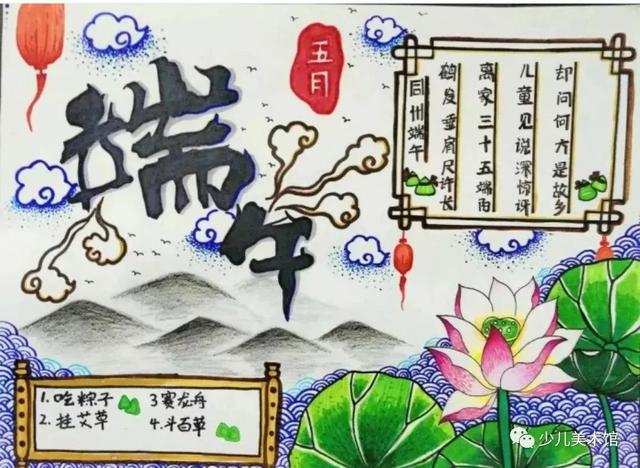 端午
五月
同州端午
鹤发垂肩尺许长
离家三十五端阳
儿童见说深惊讶
却问何方是故乡
1.吃粽子 3赛龙舟
2.挂艾草 4.斗百草
少儿美术馆